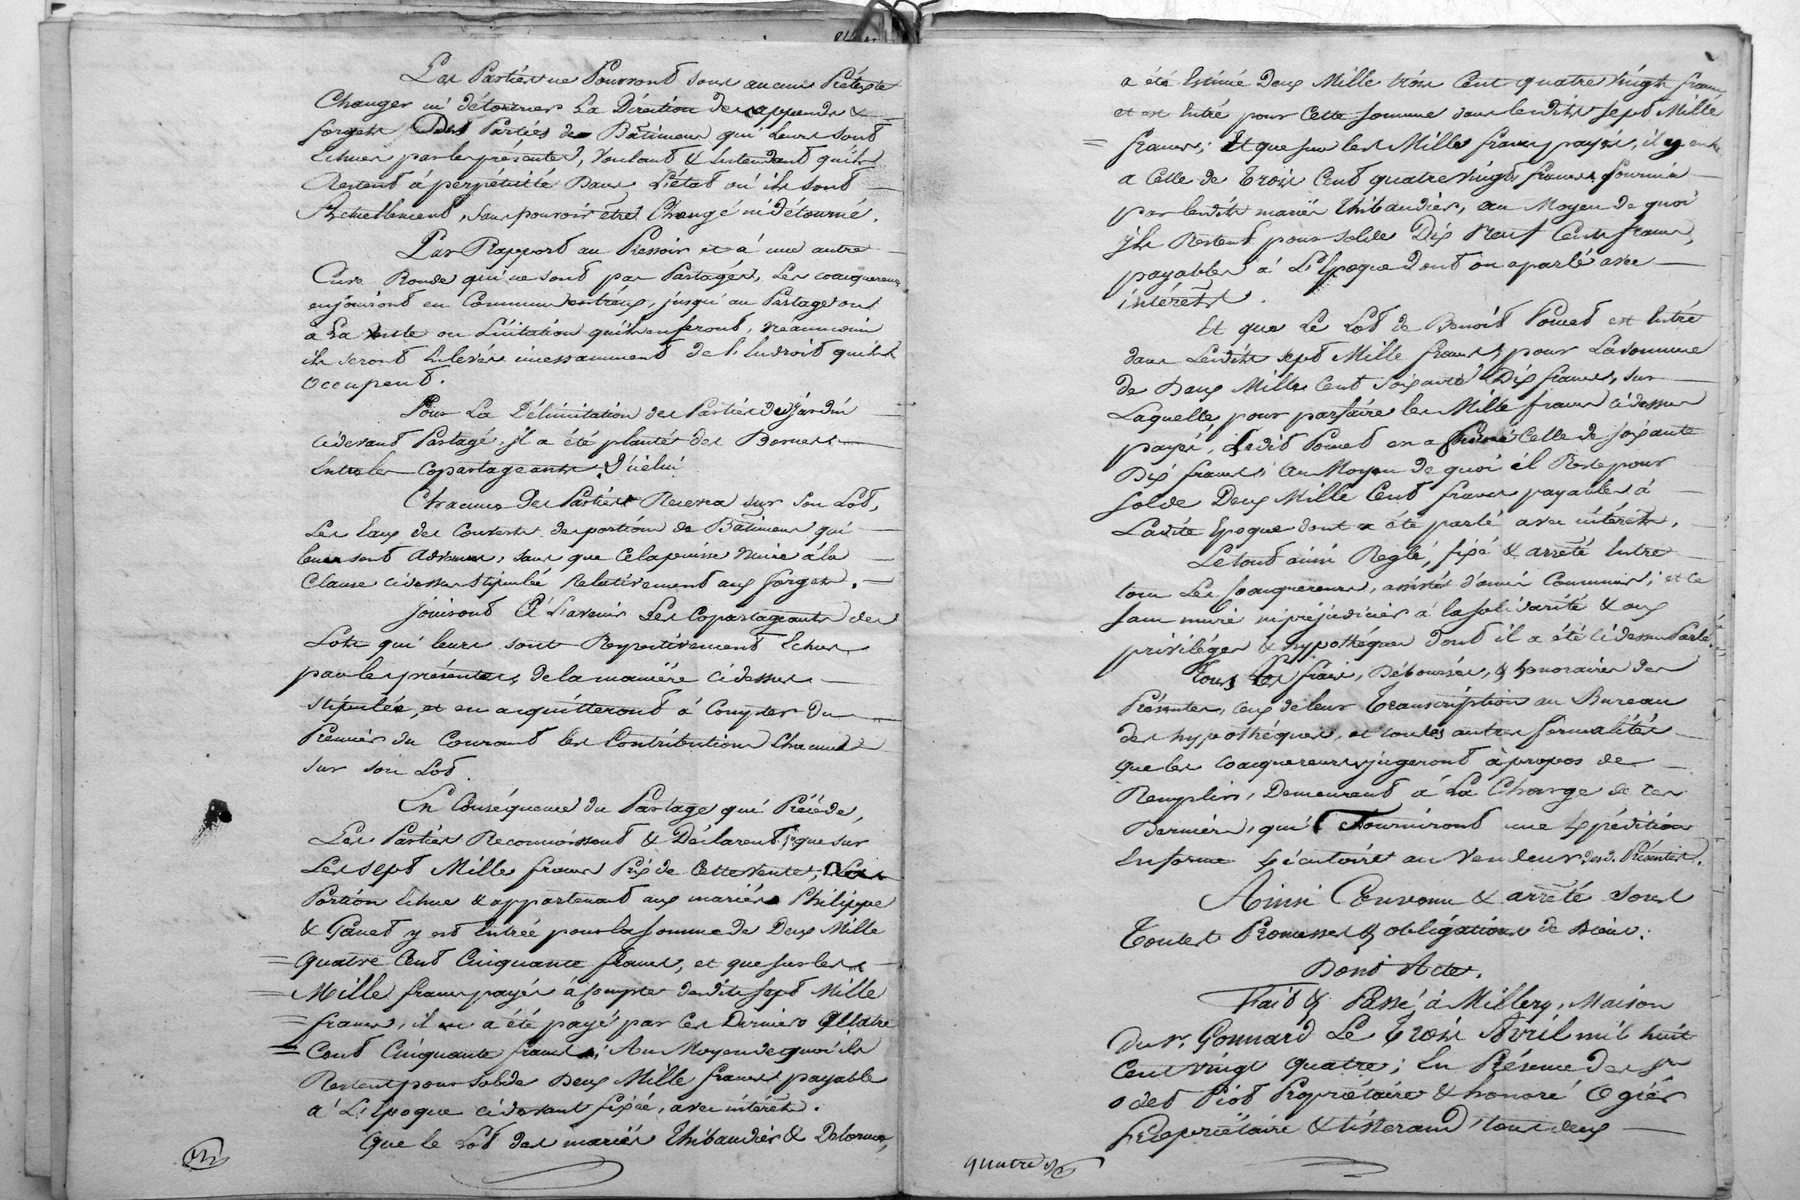 Les Parties ne Pourront sous aucun Prétexte
Changer ni détourner La Direction des appends &
forgets Des Parties de Bâtimens qui Leurs sont
Echues par les présentes, Voulant & Entendant qu'ils
Restent à perpétuité Dans L'état où ils sont
Actuellement, sans pouvoir être Changé ni détourné.
Par Rapport au Pressoir et à une autre
Cuve Ronde qui ne sont pas Partagés, Les coacquereurs
en jouiront en Commun entr'eux, jusqu'au Partage ou
à La Vente ou Licitation qu'ils en feront, néanmoins
ils seront Enlevés incessamment de L'Endroit qu'ils
occupent.
Pour La Délimitation des Parties du jardin
cidevant Partagé, il a été planté des Bornes
Entre les copartageants D'icelui.
Chacune des Parties Recevra sur son Lot,
Les Eaux des Couverts des portions de Bâtimens qui
leurs sont advenues, sans que cela puisse Nuire à la
Clause cidessus stipulée Relativement aux forgets.
Jouiront à L'avenir Les Copartageants des
Lots qui leurs sont Respectivement Echus
par les présentes, de la manière cidessus
stipulée, et en acquitteront à Compter du
Premier du Courant les Contributions Chacun
sur son Lot.
En Conséquence du Partage qui Précède,
Les Parties Reconnoissent & Déclarent, que sur
Les sept Mille francs Prix de Cette vente, La
Portion Echue & appartenant aux mariés Philippe
& Ganet y est Entrée pour la somme de Deux Mille
Quatre Cent Cinquante francs, et que sur les
Mille francs payés à compte desdits sept Mille
francs, il en a été payé par Ces Derniers Quatre
Cent Cinquante francs; Au Moyen de quoi ils
Restent pour solde Deux Mille francs payable
à L'Epoque cidevant fixée, avec intérêts.
Que le Lot des mariés Thibaudier & Delorme,
a été Estimé Deux Mille trois Cent quatre Vingt francs
et est Entré pour Cette somme dans lesdits sept Mille
francs; Et que sur les Mille francs payés, il y en
a Celle de Trois Cent quatre Vingt francs fournie
par lesdits mariés Thibaudier, au Moyen de quoi
ils Restent pour solde Dix Neuf Cents francs,
payables à L'Epoque Dont on a parlé avec
intérêts.
Et que Le Lot de Benoît Poncet est Entré
dans Lesdits sept Mille francs pour La somme
de Deux Mille Cent soixante Dix francs, sur
Laquelle, pour parfaire les Mille francs cidessus
payés, Ledit Poncet en a fourni Celle de soixante
Dix francs; au Moyen de quoi il Reste pour
solde Deux Mille Cent francs payables à
Ladite Epoque dont a été parlé avec intérêts.
Le tout ainsi Réglé, fixé & arrêté Entre
tous Les Coacquereurs, assistés d'amis Communs; et ce
sans nuire ni préjudicier à la solidarité & aux
privilèges & hypothèques dont il a été cidessus Parlé.
Tous Les frais, Déboursés, & honoraires des
Présentes, ceux de leur Transcription au Bureau
des hypothèques, et toutes autres formalités
que les coacquereurs jugeront à propos de
Remplir, Demeurent à La Charge de ces
Derniers, qui fourniront une Expédition
En forme Exécutoire au Vendeur des d. Présentes.
Ainsi Convenu & arrêté sous
Toutes Promesses & obligations de Biens.
Dont Acte.
Fait & Passé à Millery, Maison
Du Sr. Gonnard Le Trois Avril mil huit
Cent vingt quatre; En Présence des Sr
Odet Piot Propriétaire & honoré Ogier
Propriétaire & tisserand, tous deux
quatre